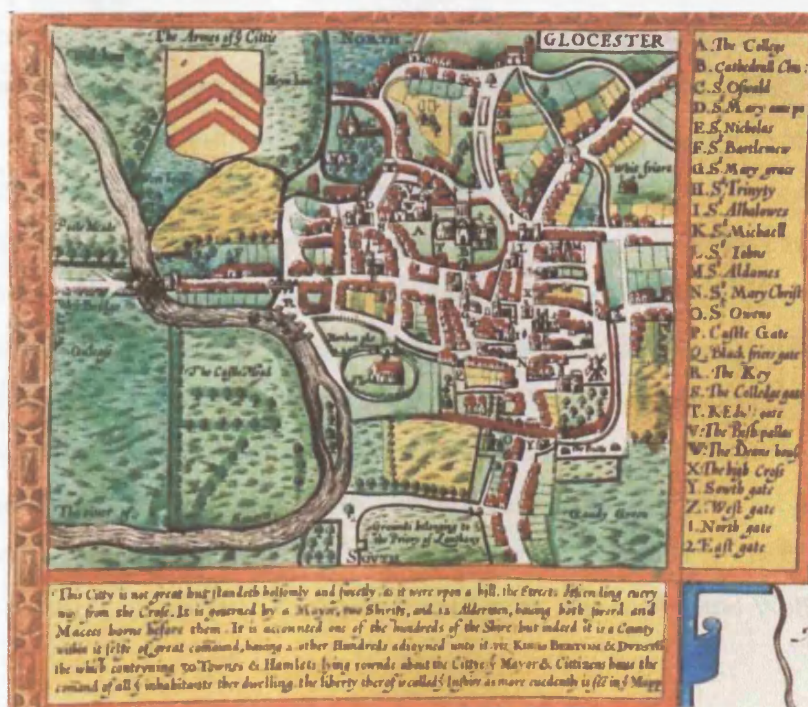 The Armes of ẏ Cittie
NORTH
GLOCESTER
Whit friers
The Castle Mead
The river of
Grounds belonging to
the Priory of Lanthony
Gaudy Green
SOVTH
A. The College
B. Cathedrall Chu:
C. S.t Oswald
D. S.t Mary
E. S.t Nicholas
F. S.t Bartlemew
G. S.t Mary grace
H. S.t Trinyty
I. S.t Alhalowes
K. S.t Michaell
L. S.t Iohns
M. S.t Aldames
N. S.t Mary Christ
O. S.t Owens
P. Castle Gate
Q. Black friers gate
R. The Key
S. The Colledge gate
T. K Edw: gate
V: The Bish pallas
W: The Deane hous
X: The high Crosse
Y. South gate
Z. West gate
1. North gate
2. East gate
This Citty is not great but standeth holsomly and sweetly, as it were upon a hill, the Streets descending every
way from the Crosse. It is governed by a Mayor, two Shrifs, and 12 Aldermen, having both sword and
Maces borne before them. It is accounted one of the hundreds of the Shire but indeed it is a County
within it selfe of great comand, having 2 other Hundreds adioyned unto it viz KINGS BERTON &
the which contryning 30 Townes & Hamlets lying rownde about the Cittye ẏ Mayor & Cittizens haue the
comand of all ẏ inhabitants ther dwelling. the liberty therof is called ẏ Inshire as more euedenth is in ẏ Mapp